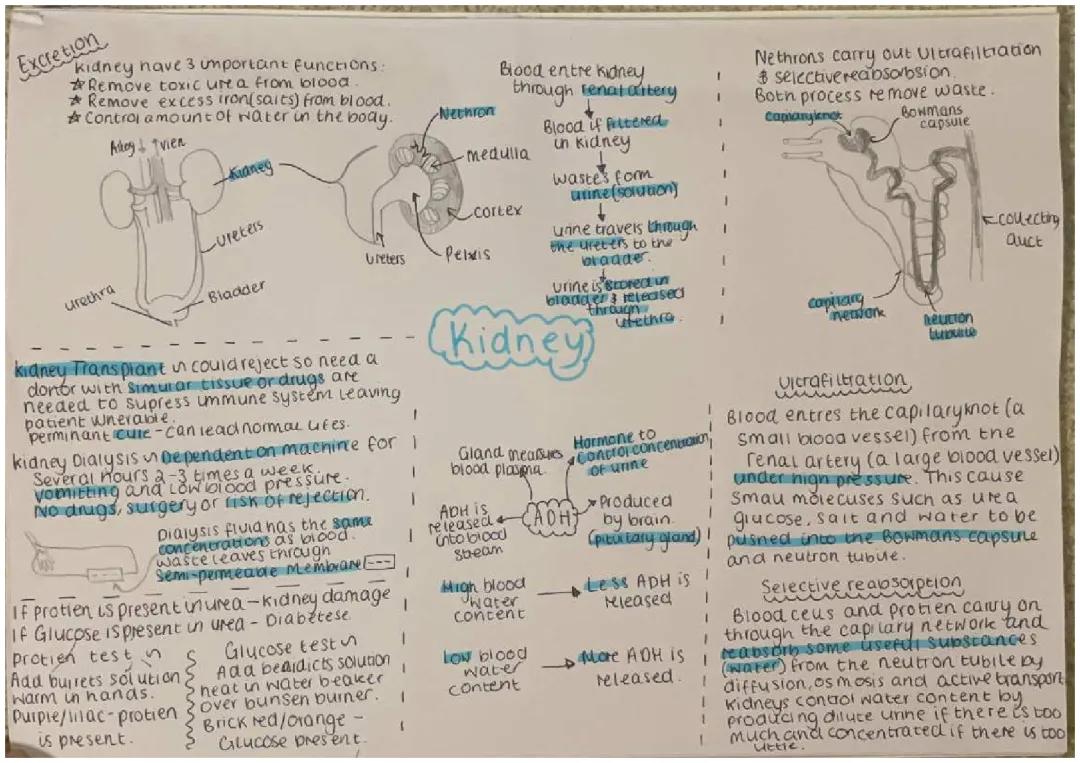 Excretion
Kidney have 3 important functions:
☆ Remove toxic urea from blood.
☆ Remove excess iron(salts) from blood.
☆ Control amount of water in the body.
Artey ↓ ↑ vien
Kidney
ureters
urethra
Bladder
Nethron
medulla
cortex
Pelvis
ureters
Blood entre kidney
through renal artery
Blood if filtered
in kidney
Wastes form
urine(solution)
urine travels through
the ureters to the
bladder.
urine is stored in
bladder & released
through
urethra.
Nethrons carry out ultrafiltration
& selective reabsorbsion.
Both process remove waste.
Capilaryknot
Bowmans
capsule
collecting
duct
capilary
network
neutron
tubuile
Kidney
Kidney Transplant could reject so need a
donor with simular tissue or drugs are
needed to supress immune system leaving
patient vnerable.
perminant cure - can lead normal lifes.
Kidney Dialysis Dependent on machine for
Several hours 2-3 times a week.
vomitting and low blood pressure.
No drugs, surgery or risk of rejection.
Dialysis fluid has the same
concentrations as blood.
waste leaves through
semi-permeable Membrane
If protien is present in urea - kidney damage
If Glucose is present in urea - Diabetese
Protien test
Add buirets solution
warm in hands.
Purple/lilac-protien
is present.
Glucose test
Add beaidicts solution
heat in water beaker
over bunsen burner.
Brick red/orange -
Glucose present.
Gland measures
blood plasma.
Hormone to
control concentration
of urine
ADH is
released
into blood
stream
ADH
Produced
by brain.
(pituitary gland)
High blood
water
content
Less ADH is
released
Low blood
water
content
More ADH is
released.
Ultrafiltration
Blood entres the capilaryknot (a
small blood vessel) from the
renal artery (a large blood vessel)
under high pressure. This cause
small molecuses such as urea
glucose, salt and water to be
pushed into the Bowmans capsule
and neutron tubule.
Selective reabsorption
Blood cells and protien carry on
through the capilary network and
reabsorb some useful substances
(water) from the neutron tubile by
diffusion, osmosis and active transport
kidneys control water content by
producing dilute urine if there is too
much and concentrated if there is too
little.